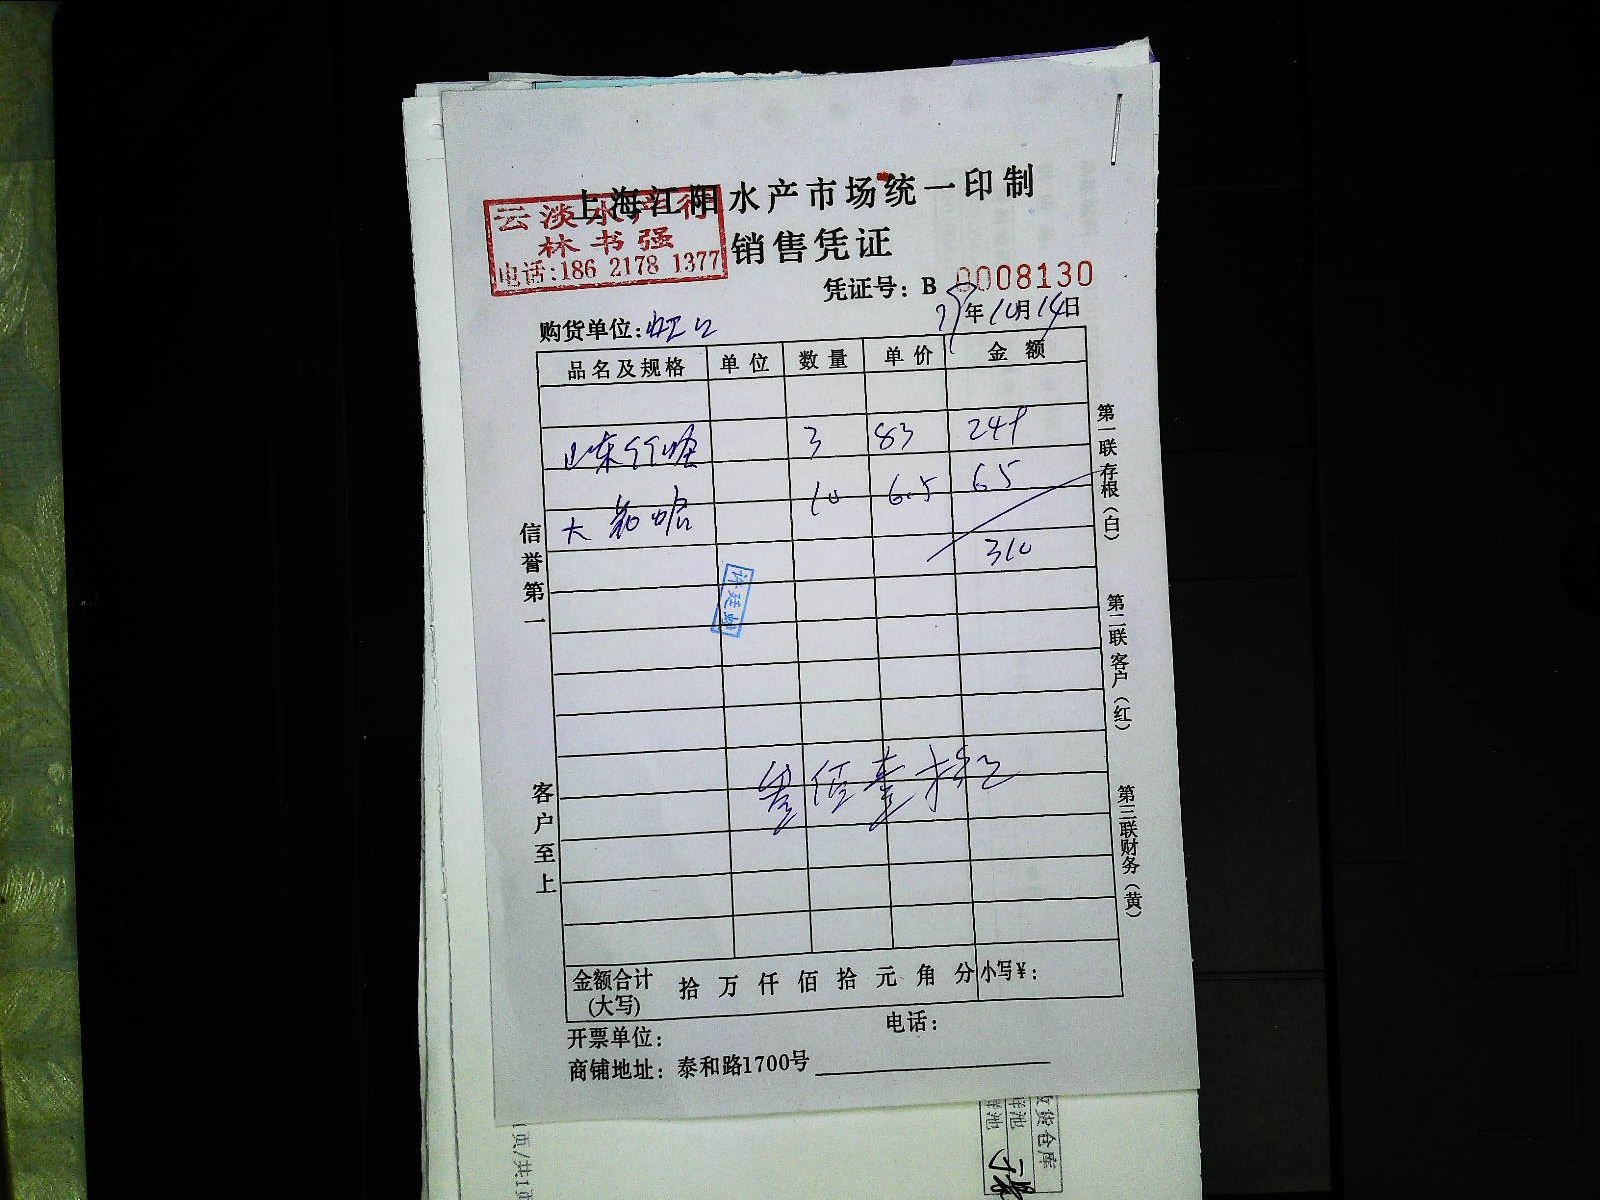 上海江阳水产市场统一印制
云淡水产行
林书强
电话:186 2178 1377
销售凭证
凭证号: B 0008130
年10月14日
购货单位:虹口
品名及规格 单位 数量 单价 金额
山东竹蛏 3 83 249
大 6.5 10 65
310
许廷
叁佰壹拾元
信誉第一
客户至上
第一联存根(白)
第二联客户(红)
第三联财务(黄)
金额合计(大写) 拾 万 仟 佰 拾 元 角 分 小写¥:
开票单位: 电话:
商铺地址: 泰和路1700号
收货仓库
1页/共1页